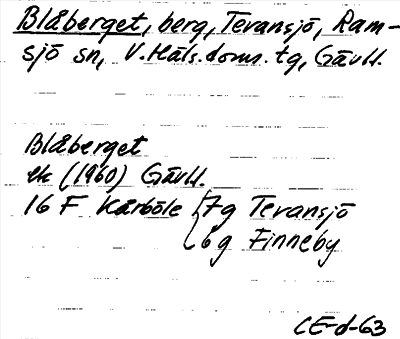 Blåberget, berg, Tevansjö, Ram-
sjö sn, V. Häls. doms. tg, Gävl.
Blåberget
ek (1960) Gävl.
16 F Kårböle { 7g Tevansjö
6g Finneby
CE-d-63